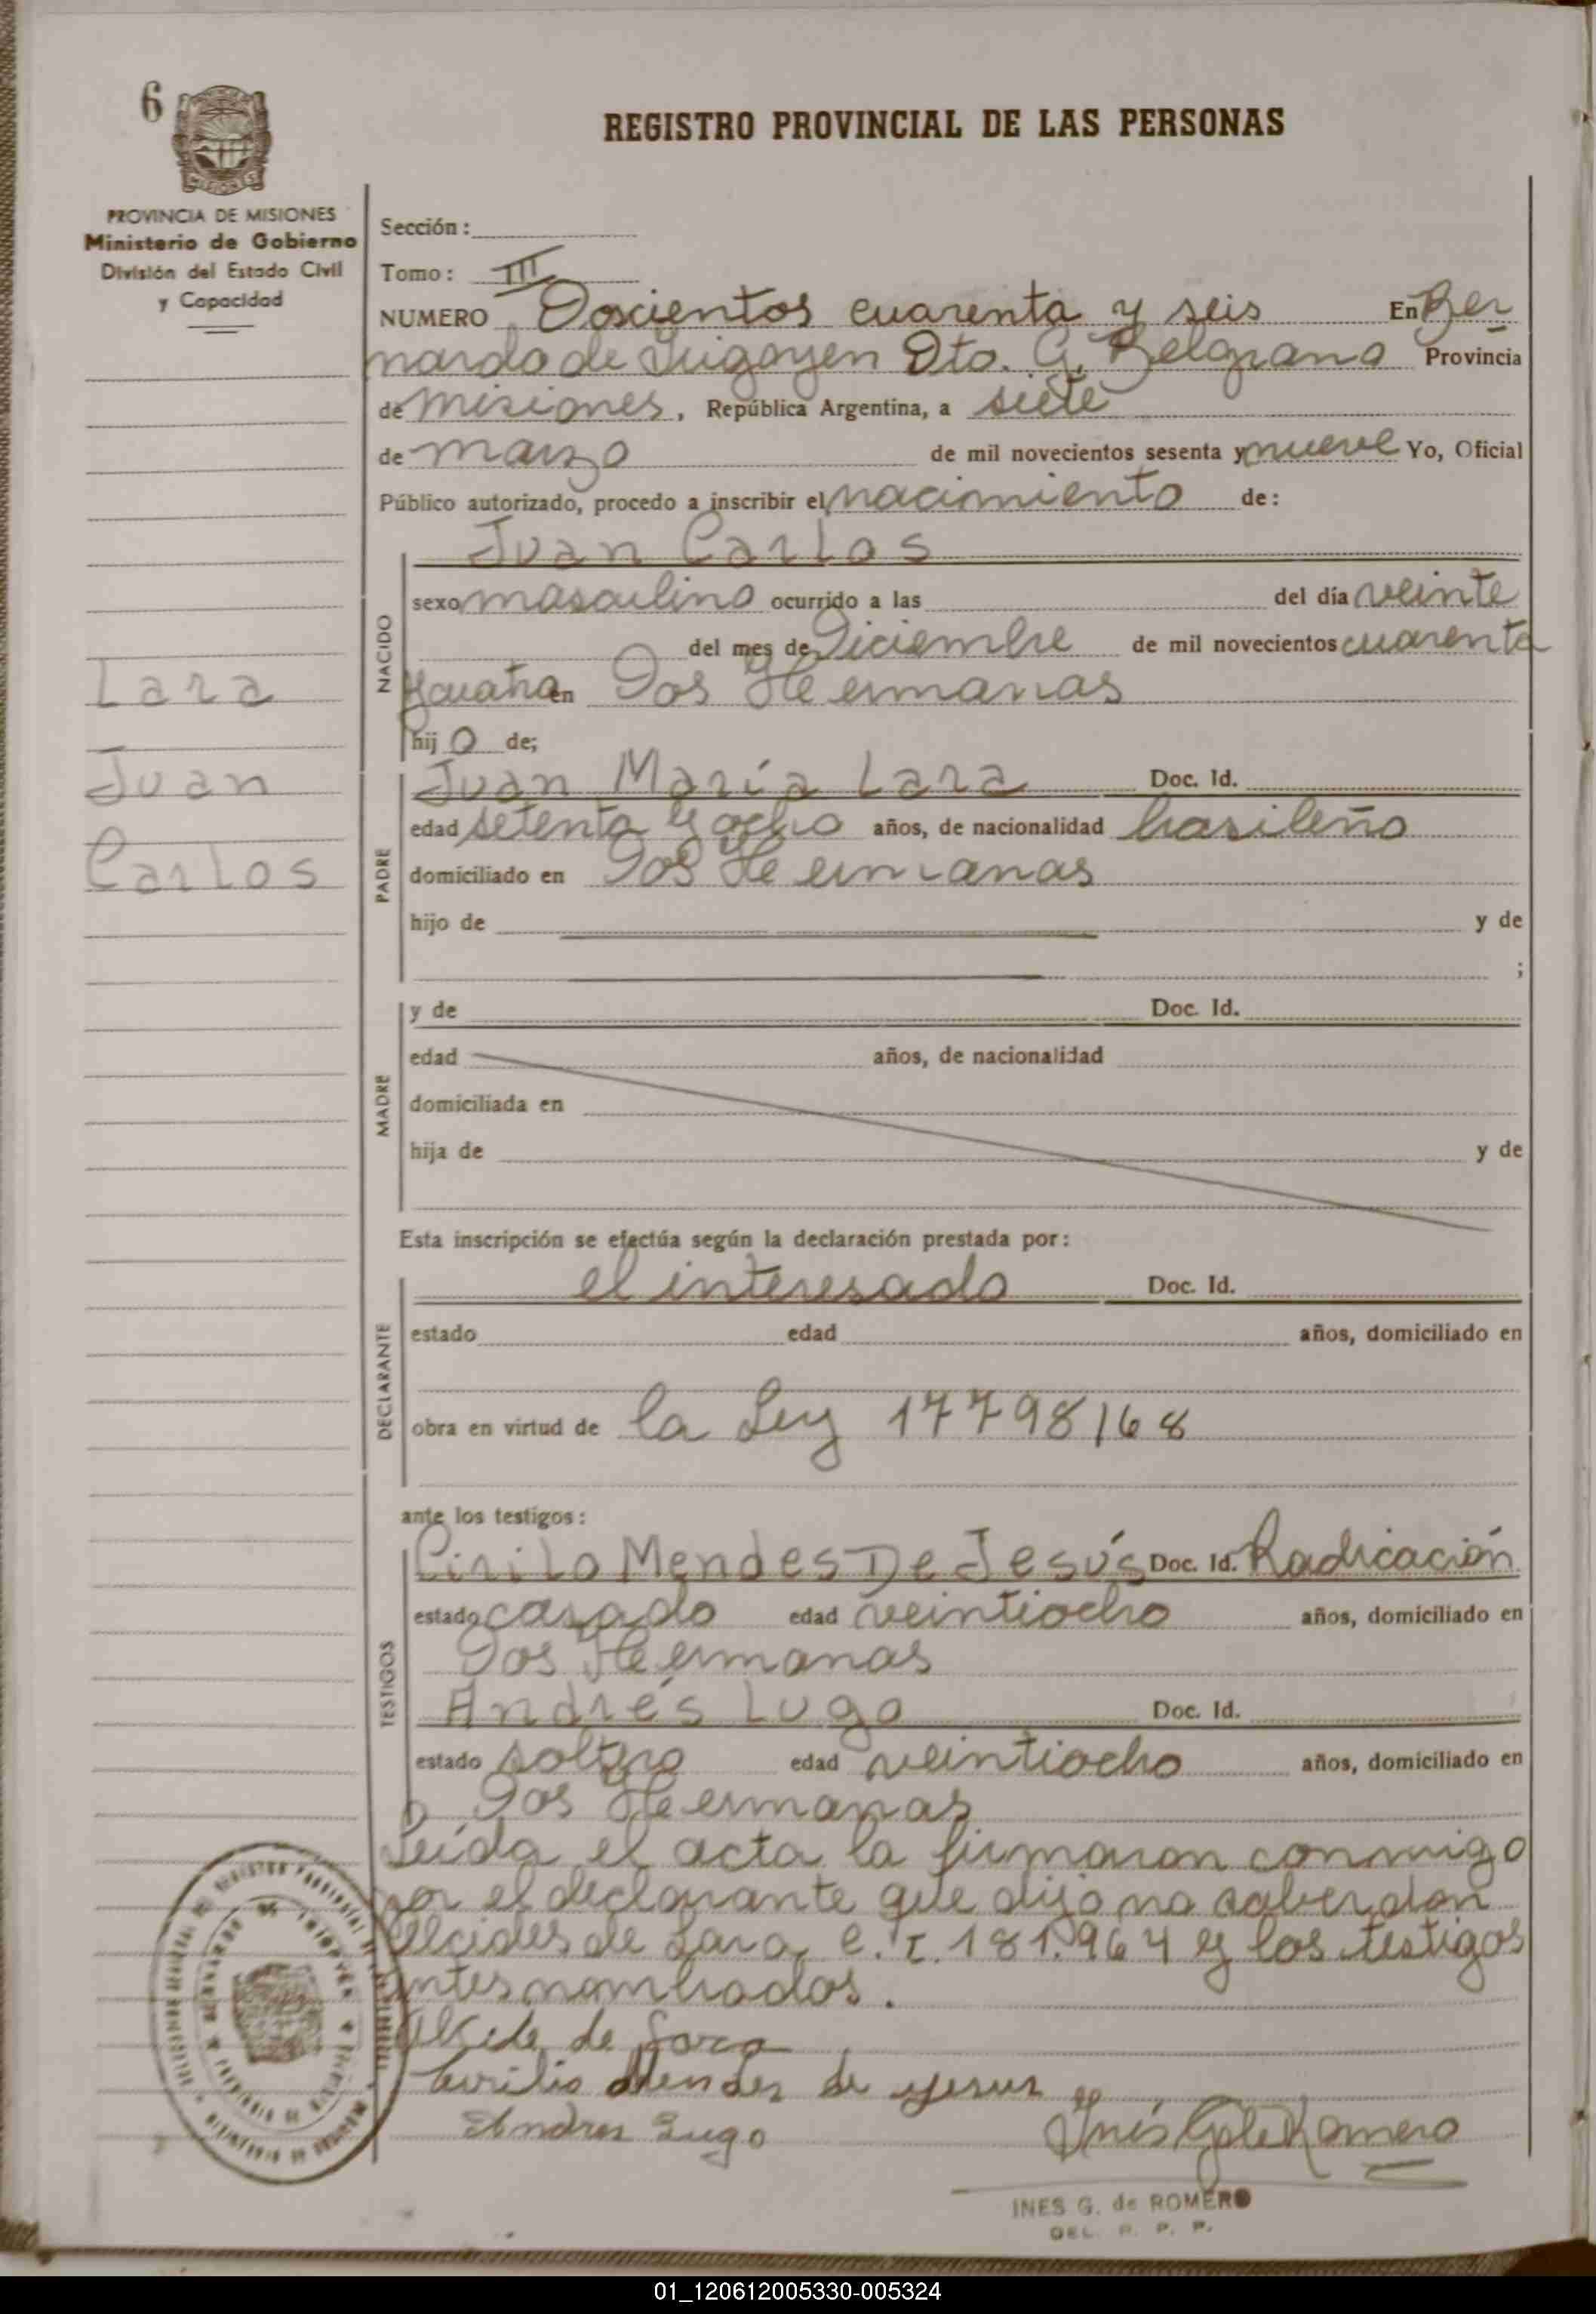 6
REGISTRO PROVINCIAL DE LAS PERSONAS
PROVINCIA DE MISIONES
Ministerio de Gobierno
División del Estado Civil
y Capacidad
Sección:
Tomo: III
NUMERO Doscientos cuarenta y seis En Ber
nardo de Irigoyen Dto. G. Belgrano Provincia
de misiones, República Argentina, a siete
de marzo de mil novecientos sesenta y nueve Yo, Oficial
Público autorizado, procedo a inscribir el nacimiento de:
Juan Carlos
NACIDO
sexo masculino ocurrido a las del día veinte
del mes de Diciembre de mil novecientos cuarenta
en Dos Hermanas
hijo de;
Lara
Juan
Carlos
PADRE
Juan María Lara Doc. Id.
edad setenta y ocho años, de nacionalidad brasileño
domiciliado en Dos Hermanas
hijo de y de
;
MADRE
y de Doc. Id.
edad años, de nacionalidad
domiciliada en
hija de y de
Esta inscripción se efectúa según la declaración prestada por:
DECLARANTE
el interesado Doc. Id.
estado edad años, domiciliado en
obra en virtud de la Ley 17798/68
ante los testigos:
TESTIGOS
Cirilo Mendes De Jesús Doc. Id. Radicación
estado casado edad veintiocho años, domiciliado en
Dos Hermanas
Andrés Lugo Doc. Id.
estado soltero edad veintiocho años, domiciliado en
Dos Hermanas
Leída el acta la firmaron conmigo
por el declarante que dijo no saber don
Alcides de Lara, C.I. 181.964 y los testigos
antes nombrados.
Alcide de Lara
Mendes de Jesus
Andres Lugo
Inés G. de Romero
INES G. de ROMERO
DEL. R. P. P.
01_120612005330-005324